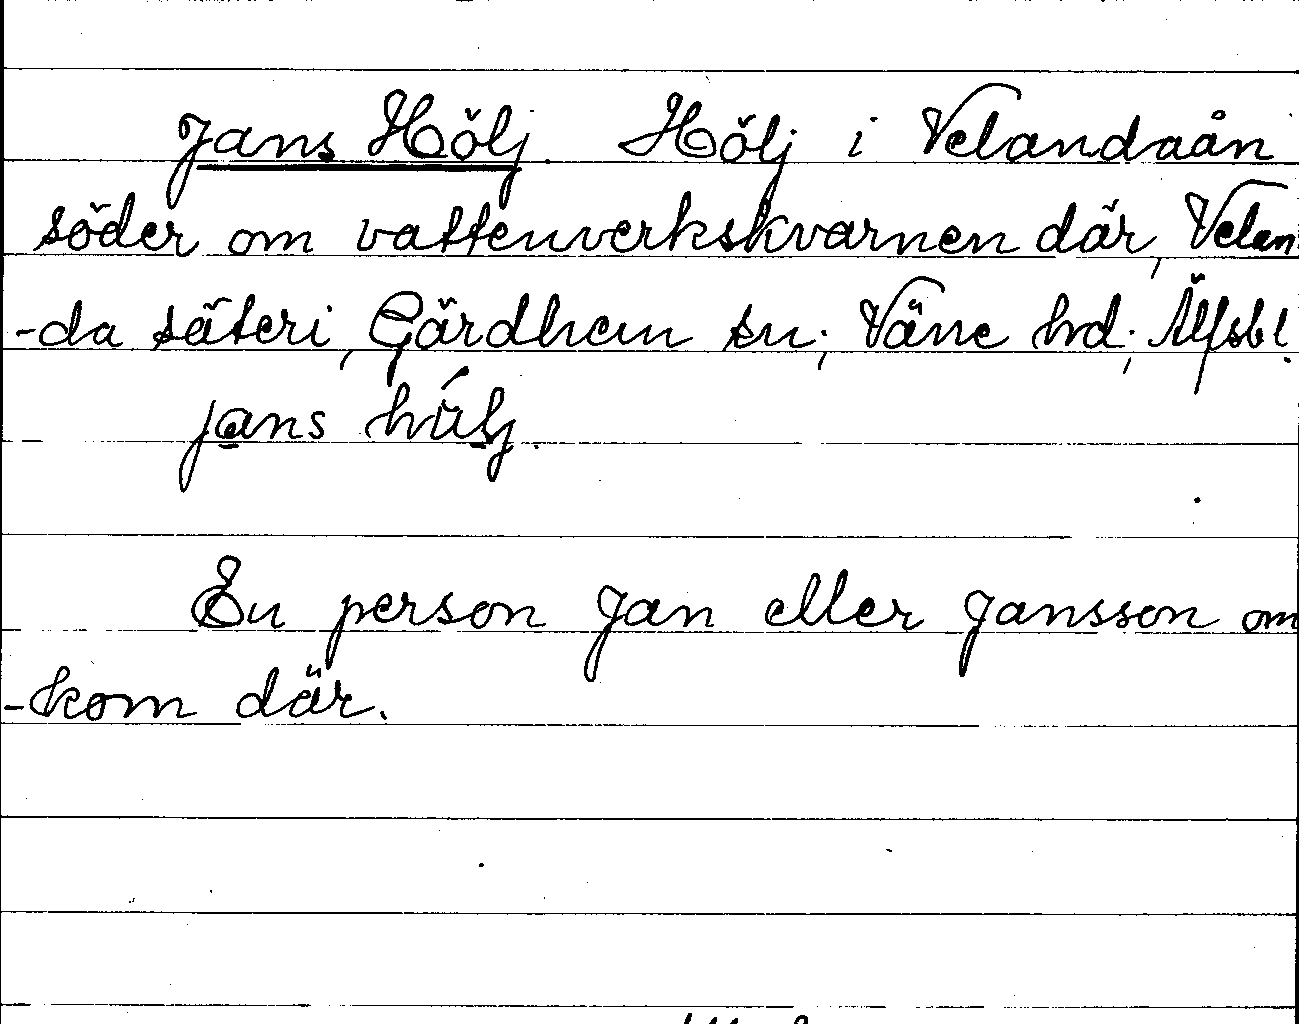 Jans Hölj. Hölj i Velandaån
söder om vattenverkskvarnen där, Velan
-da säteri, Gärdhem sn; Väne hd; Älfsbl.
jans húlj.
En person Jan eller Jansson om
-kom där.